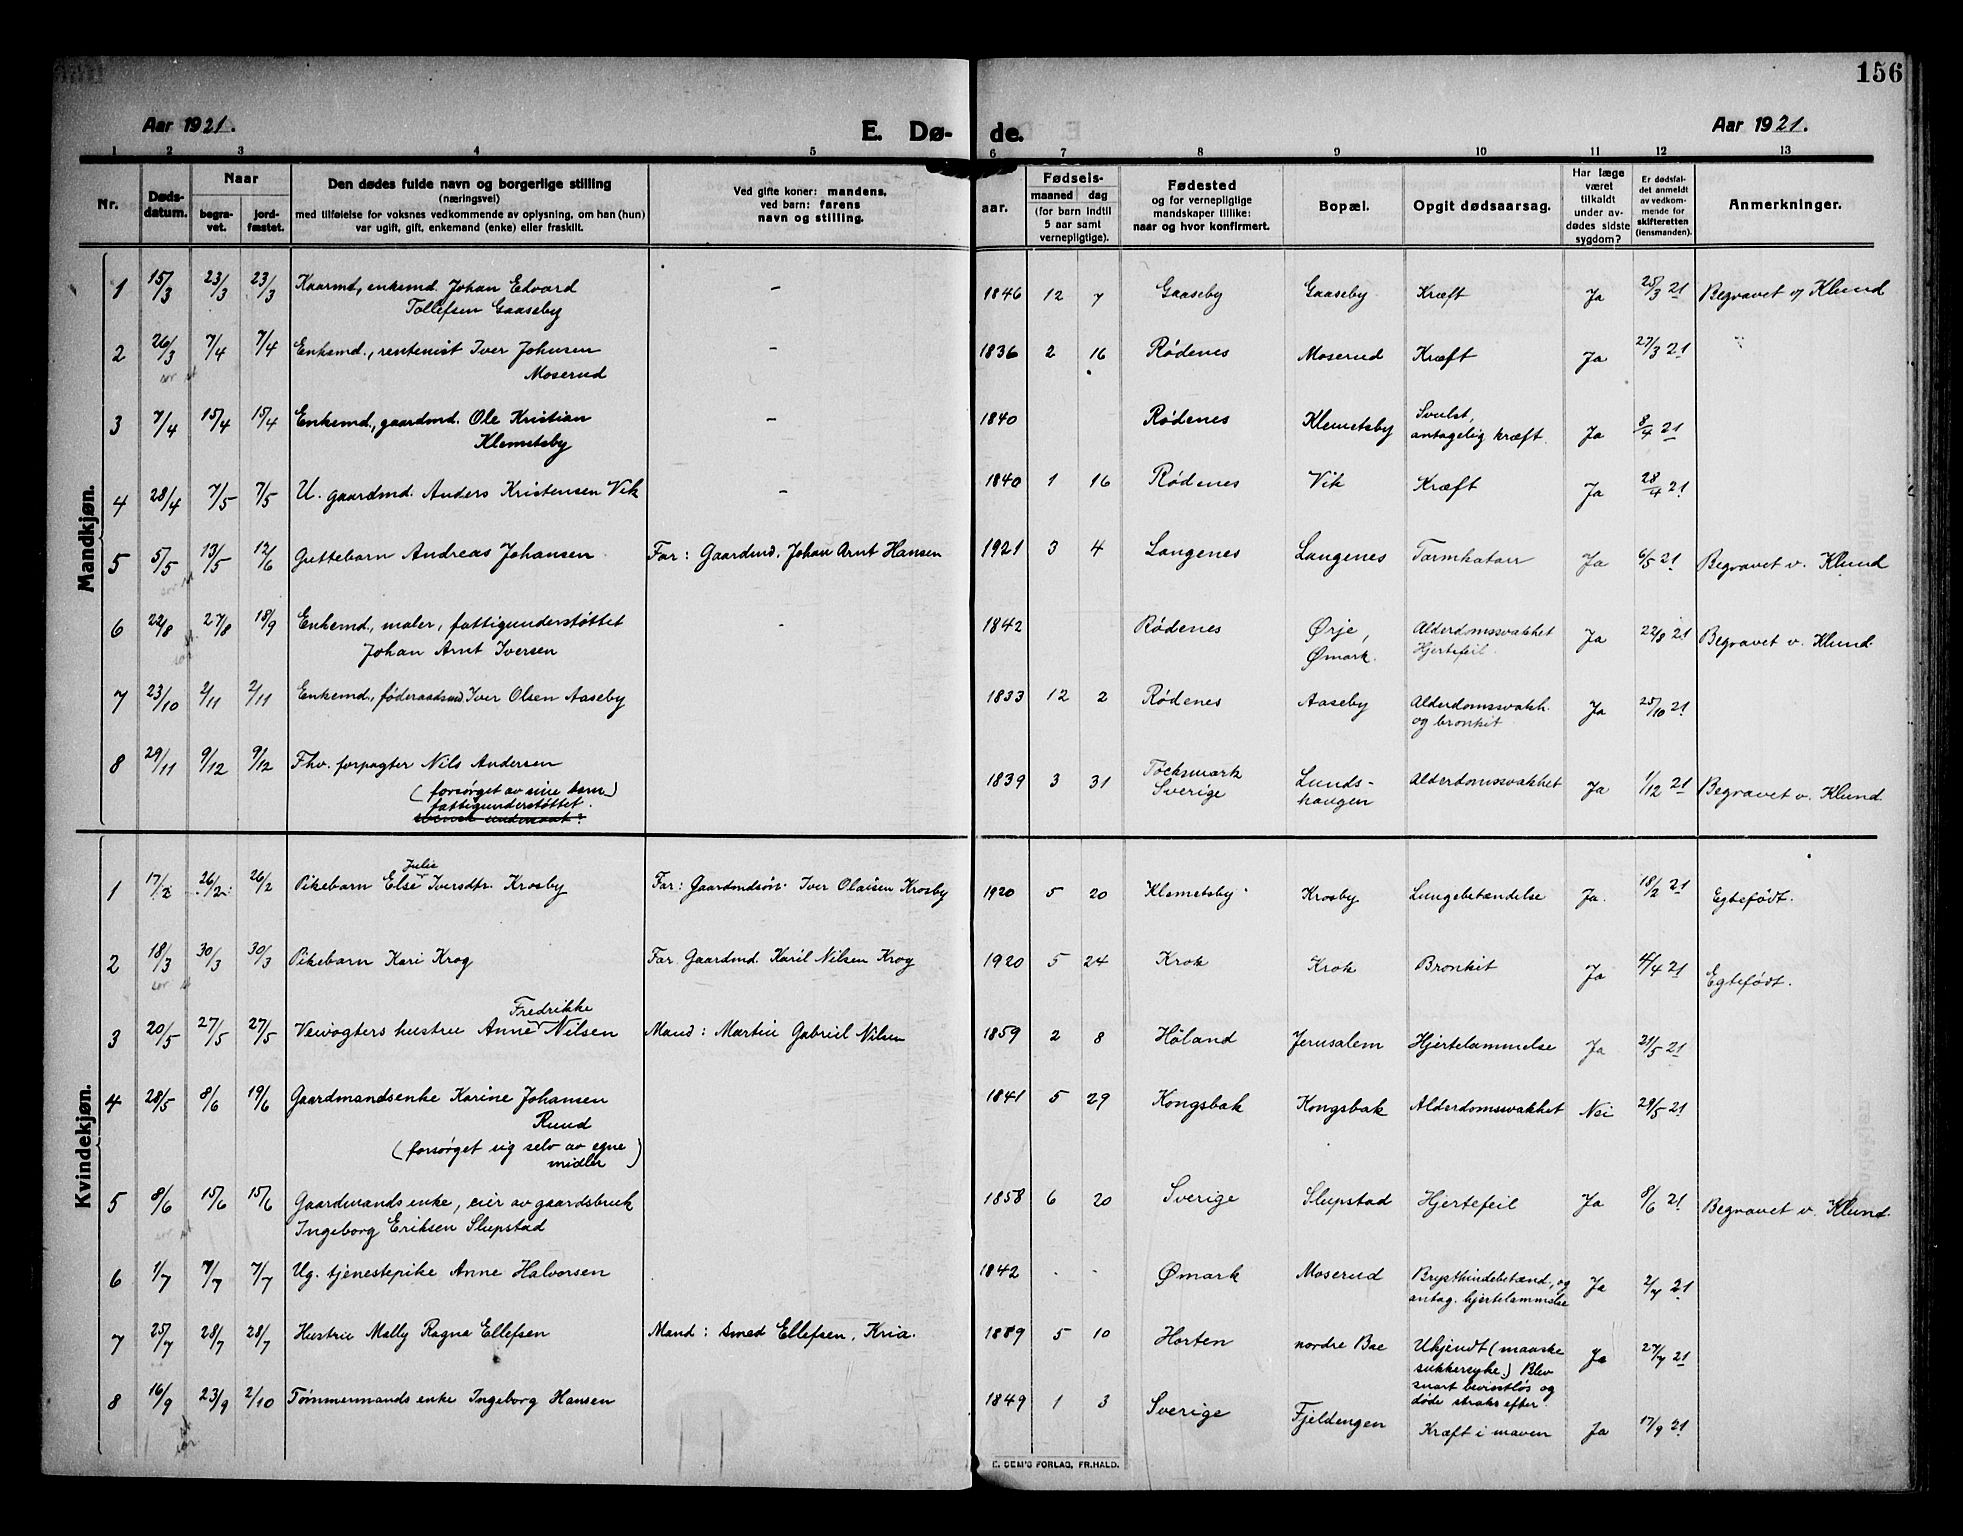 156
Aar 1921.
E. Dø-
de.
Aar 1921.
1 2 3 4 5 6 7 8 9 10 11 12 13
Nr.
Døds-
datum.
Naar
begra-
vet.
jord-
fæstet.
Den dødes fulde navn og borgerlige stilling
(næringsvei)
med tilføielse for voksnes vedkommende av oplysning, om han (hun)
var ugift, gift, enkemand (enke) eller fraskilt.
Ved gifte koner: mandens,
ved barn: farens
navn og stilling.
Fødsels-
aar.
maaned
dag
(for barn indtil
5 aar samt
vernepligtige).
Fødested
og for vernepligtige
mandskaper tillike:
naar og hvor konfirmert.
Bopæl.
Opgit dødsaarsag.
Har læge
været
tilkaldt
under av-
dødes sidste
sygdom?
Er dødsfal-
det anmeldt
av vedkom-
mende for
skifteretten
(lensmanden).
Anmerkninger.
Mandkjøn.
1 15/3 23/3 23/3 Kaarmd, enkemd. Johan Edvard - 1846 12 7 Gaaseby Gaaseby Kræft Ja 25/3 21 Begravet v Klund
Tollefsen Gaaseby
2 26/3 7/4 7/4 Enkemd., rentenist Iver Johnsen - 1836 2 16 Rødenes Moserud Kræft Ja 27/3 21 "
Moserud
3 7/4 15/4 15/4 Enkemd., gaardmd. Ole Kristian - 1840 Rødenes Klemetsby Svulst, Ja 8/4 21
Klemetsby antagelig kræft.
4 28/4 7/5 7/5 U. gaardmd. Anders Kristensen Vik - 1840 1 16 Rødenes Vik Kræft Ja 28/4 21
5 5/5 13/5 12/6 Guttebarn Andreas Johansen Far: Gaardmd. Johan Arnt Hansen 1921 3 4 Langenes Langenes Tarmkatarr Ja 6/5 21 Begravet v. Klund
6 22/8 27/8 18/9 Enkemd., maler, fattigunderstøttet - 1842 Rødenes Ørje, Alderdomssvakhet Ja 22/8 21 Begravet v. Klund
Johan Arnt Iversen Ømark. Hjertefeil.
7 23/10 2/11 2/11 Enkemd., føderaadsmd Iver Olsen Aaseby 1833 12 2 Rødenes Aaseby Alderdomssvakh. Ja 25/10 21
og bronkit
8 29/11 9/12 9/12 Fhv. forpagter Nils Andersen 1839 3 31 Töcksmark Lunds- Alderdomssvakhet Ja 1/12 21 Begravet v. Klund
(forsørget av sine barn) Sverige haugen
fattigunderstøttet.
Kvindekjøn.
Julie
1 17/2 26/2 26/2 Pikebarn Else Iversdtr. Krosby Far: Gaardmdsøn Iver Olaisen Krosby 1920 5 20 Klemetsby Krosby Lungebetændelse Ja. 18/2 21 Egtefødt.
2 18/3 30/3 30/3 Pikebarn Kari Krog Far. Gaardmd. Karil Nilsen Krog 1920 5 24 Krok Krok Bronkit Ja 4/4 21 Egtefødt.
Fredrikke
3 20/5 27/5 27/5 Veivogters hustru Anne Nilsen Mand: Martin Gabriel Nilsen 1859 2 8 Höland Jerusalem Hjertelammelse Ja 21/5 21
4 28/5 8/6 19/6 Gaardmandsenke Karine Johansen 1841 5 29 Kongsbak Kongsbak Alderdomssvakhet Nei 29/5 21
Ruud
(forsørget sig selv av egne
midler)
5 8/6 15/6 15/6 Gaardmands enke, eier av gaardsbruk 1858 6 20 Sverige Slupstad Hjertefeil Ja 8/6 21 Begravet v. Klund.
Ingeborg Eriksen Slupstad
6 1/7 7/7 7/7 Ug. tjenestepike Anne Halvorsen 1842 - - Ømark Moserud Brysthindebetænd., og Ja 2/7 21
antag. hjertelammelse
7 25/7 28/7 28/7 Hustru Mally Ragna Ellefsen Mand: Smed Ellefsen, Kria. 1889 5 10 Horten nordre Bae Ukjendt (maaske Ja 27/7 21
sukkersyke.) Blev
snart bevisstløs og
døde straks efter.
8 16/9 23/9 2/10 Tømmermands enke Ingeborg Hansen 1849 1 3 Sverige Fjeldengen Kræft i maven Ja 17/9 21
E. SEM'S FORLAG, FR.HALD.